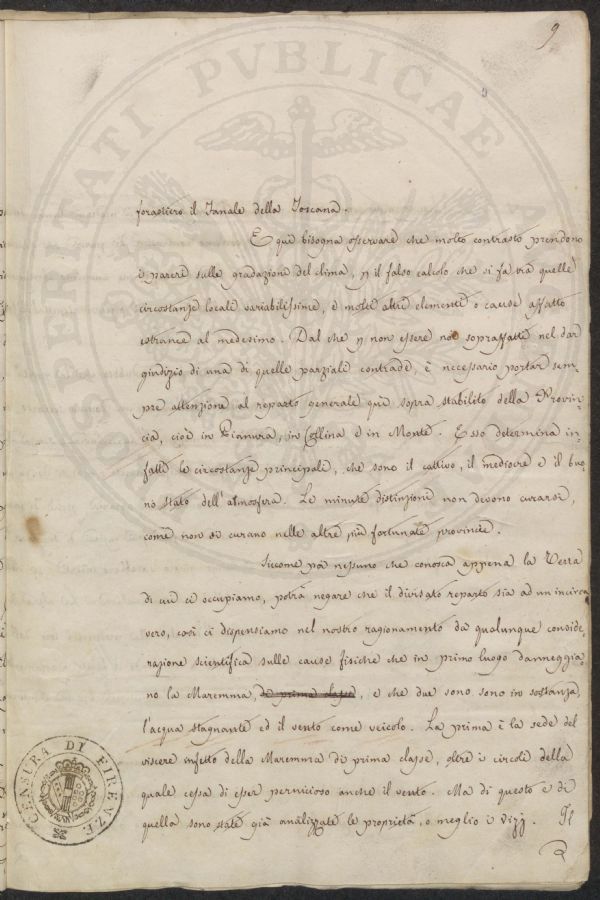 9
forastiero il Fanale della Toscana.
E quì bisogna osservare che molto contrasto prendono
i pareri sulle gradazioni del clima, p il falso calcolo che si fa tra quelle
circostanze locali variabilissime, e molti altri elementi o cause affatto
estranee al medesimo. Dal che p non essere noi sopraffatti nel dar
giudizio di una di quelle parziali contrade, è necessario portar sem-
pre attenzione al reparto generale quì sopra stabilito della Provin-
cia, cioè in Pianura, in Collina e in Monte. Esso determina in-
fatti le circostanze principali, che sono il cattivo, il mediocre e il buo-
no stato dell'atmosfera. Le minute distinzioni non devono curarsi,
come non si curano nelle altre più fortunate provincie.
Siccome poi nessuno che conosca appena la Terra
di cui ci occupiamo, potrà negare che il divisato reparto sia ad un incirca
vero, così ci dispensiamo nel nostro ragionamento da qualunque conside-
razione scientifica sulle cause fisiche che in primo luogo danneggia-
no la Maremma, di prima classe, e che due sono sono in sostanza,
l'acqua stagnante ed il vento come veicolo. La prima è la sede del
viscere infetto della Maremma di prima classe, oltre i circoli della
quale cessa di esser pernicioso anche il vento. Ma di questo e di
quella sono state già analizzate le proprietà, o meglio i vizj. Il
CENSURA DI FIRENZE
PROSPERITATI PVBLICAE